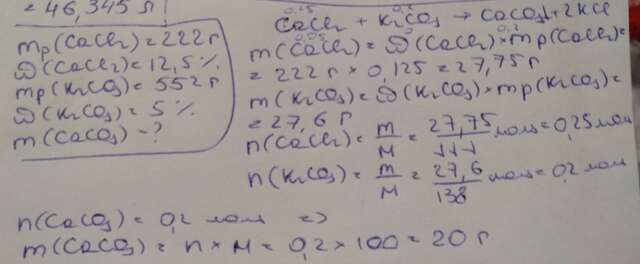 = 46,345 л
mp(CaCl2) = 222 г
ω(CaCl2) = 12,5 %
mp(K2CO3) = 552 г
ω(K2CO3) = 5 %
m(CaCO3) - ?
0,25 0,2 0,2
CaCl2 + K2CO3 → CaCO3↓ + 2KCl
m(CaCl2) = ω(CaCl2) × mp(CaCl2) =
= 222 г × 0,125 = 27,75 г
m(K2CO3) = ω(K2CO3) × mp(K2CO3) =
= 27,6 г
n(CaCl2) = m/M = 27,75/111 моль = 0,25 моль
n(K2CO3) = m/M = 27,6/138 моль = 0,2 моль
n(CaCO3) = 0,2 моль =>
m(CaCO3) = n × M = 0,2 × 100 = 20 г